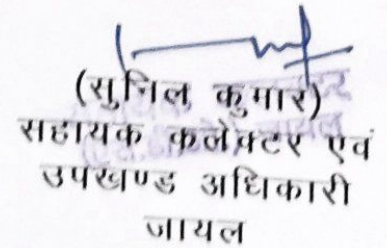 (सुनिल कुमार)
सहायक कलेक्टर एवं
उपखण्ड अधिकारी
जायल